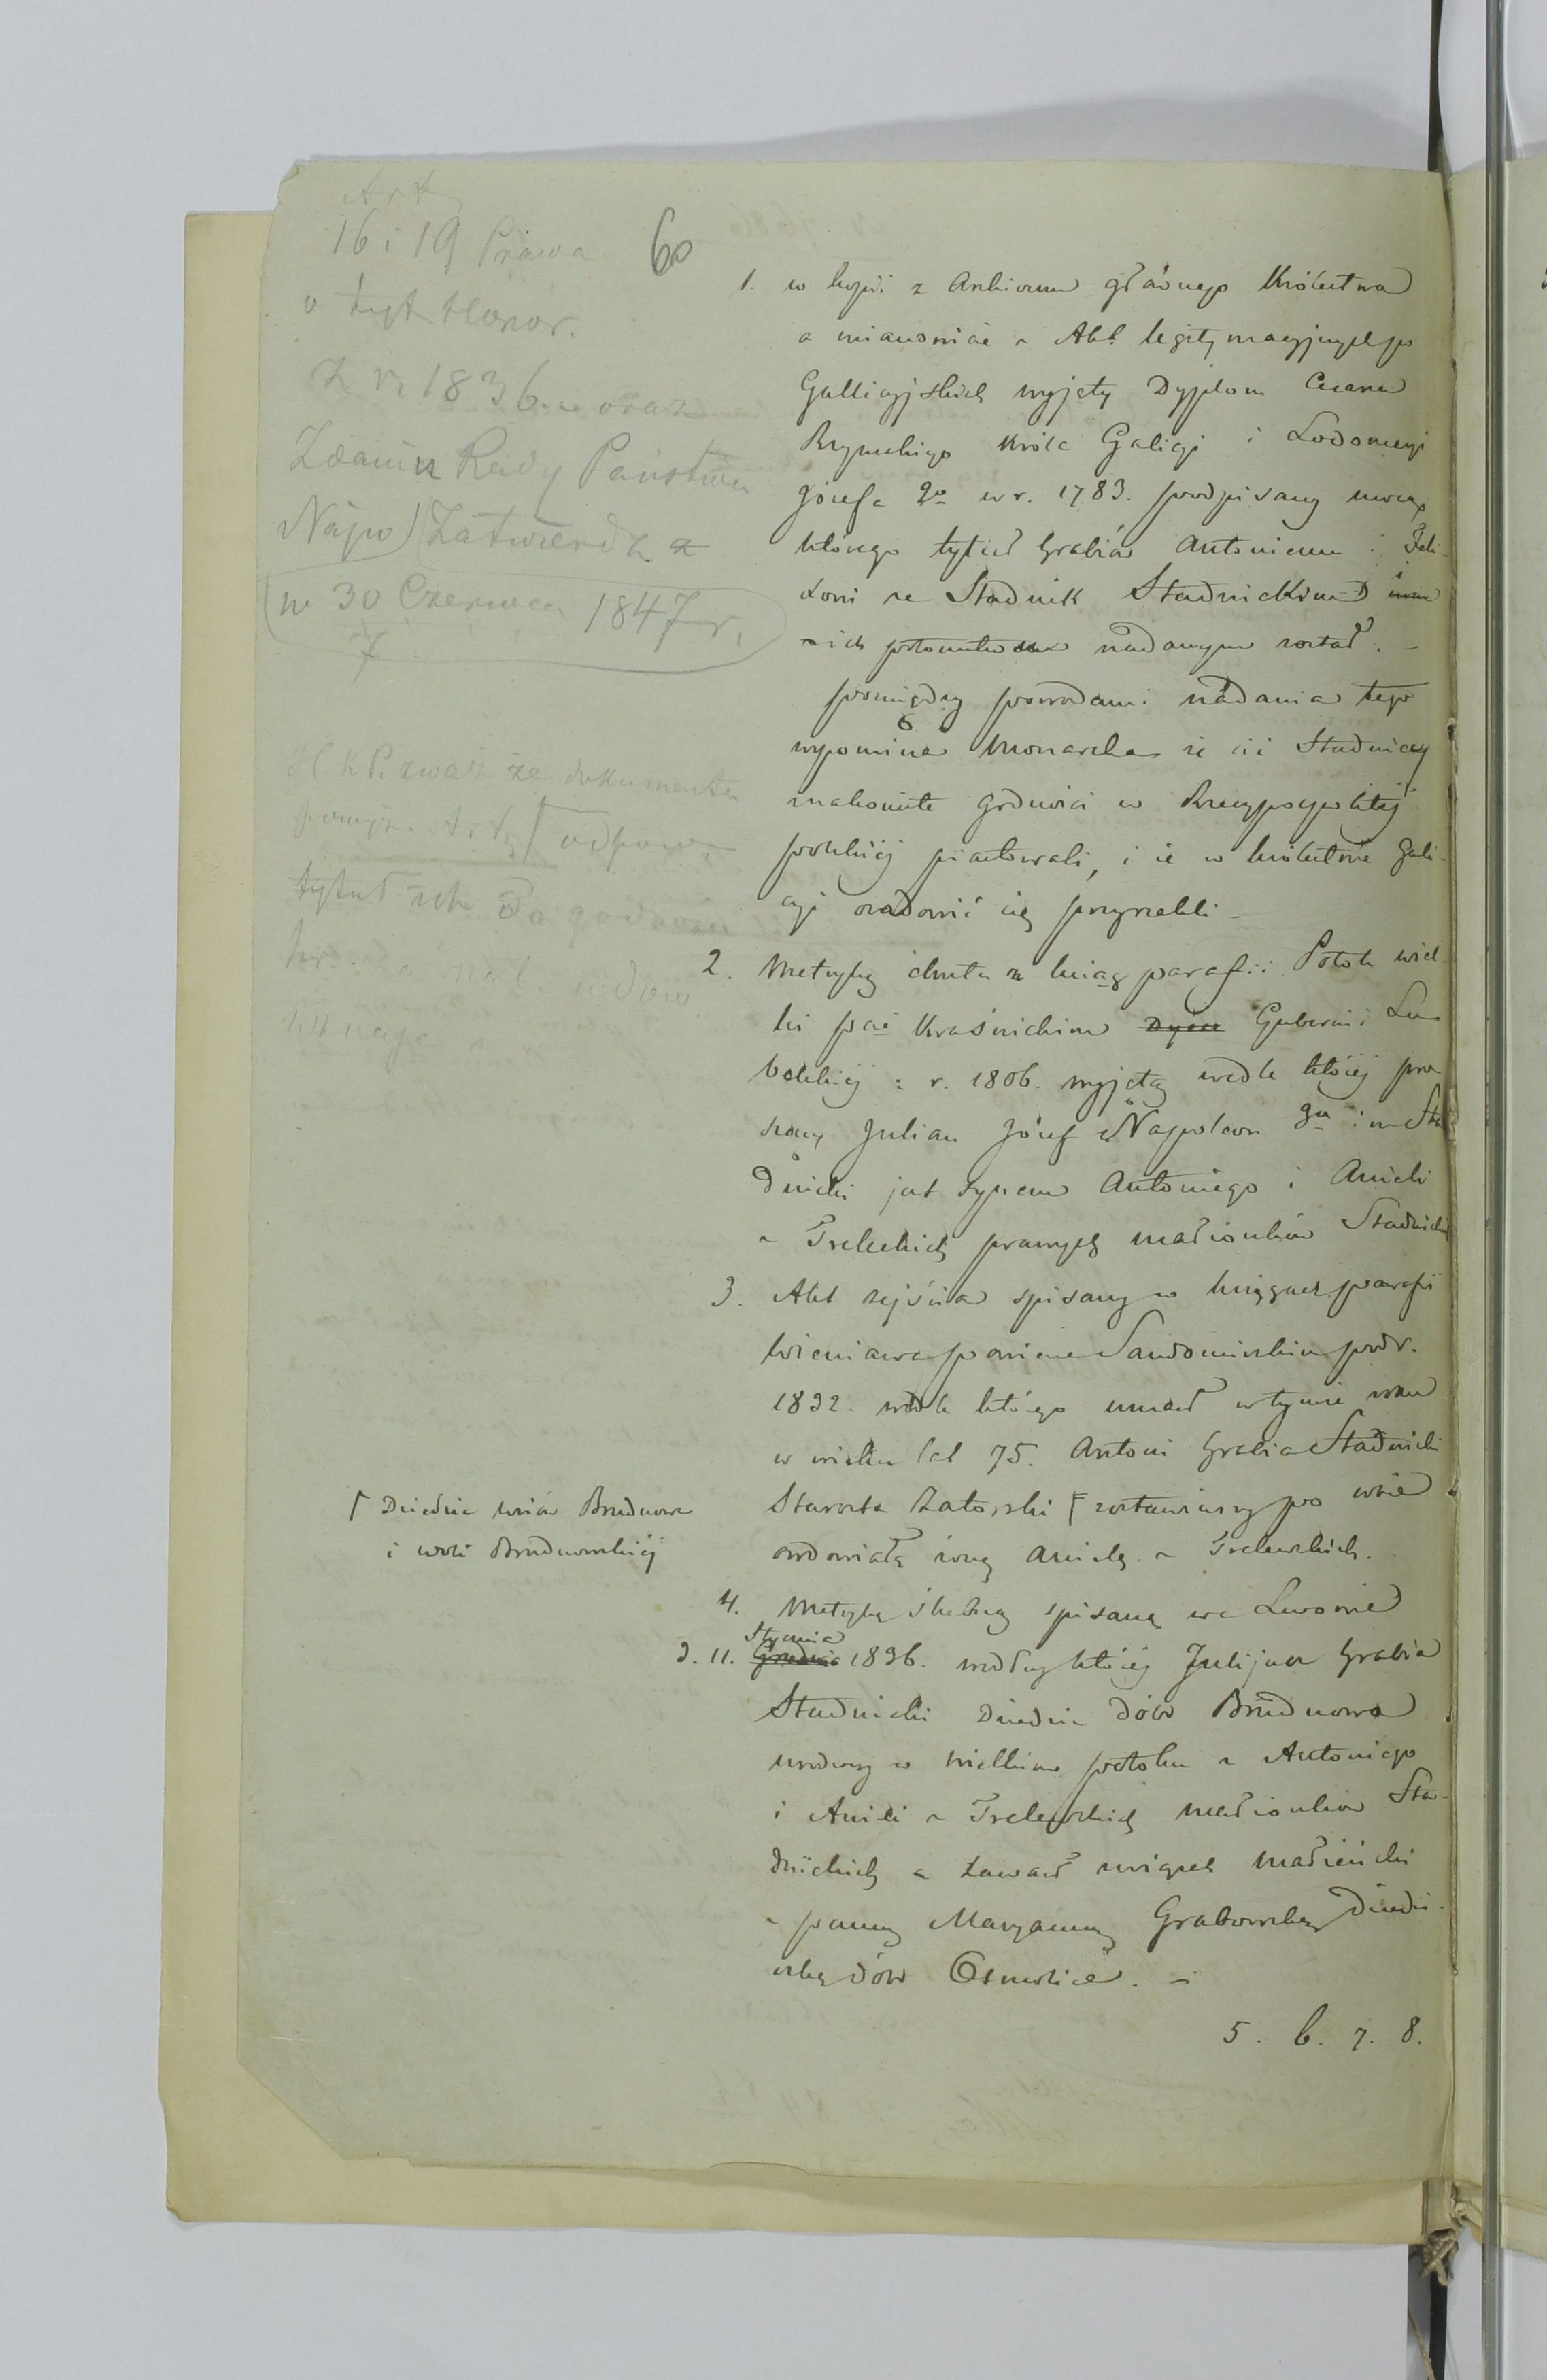 Art
16 i 19 Prawa
o tyt Honor.
z r. 1836. oraz
Zdaniu Rady Państwa
Najw) Zatwierdz.
(w 30 Czerwca 1847 r.
7
zważ że dokumenta
tytuł ich do godności
60
1. w kopii z Archiwum głównego Królestwa
a mianowicie z Akt legitymacyjnych po
Gallicyjskich wyjęty Dyplom Cesarza
Rzymskiego Króla Galicyi i Lodomeryi
Józefa 2º w r. 1783. podpisany mocą
którego tytuł Grabiów Antoniemu i Feli-
xowi ze Stadnik Stadnickim i
ich potomstwu nadanym został. –
pomiędzy powodami nadania tego
wspomina Monarcha że ciż Stadniccy
znakomite godności w Rzeczypospolitej
polskiej piastowali, i że w królestwie Gali-
cyi osadowić się przyrzekli –
2. Metrykę chrztu z ksiąg parafii Potok wiel-
ki pcie Kraśnickim Gubernii Lu
belskiej z r. 1806. wyjętą wedle której pro
szący Julian Józef Napoleon 3ga im Sta
dnicki jest synem Antoniego i Anieli
z Treleckich prawych małżonków Stadnickich
3. Akt zejścia spisany w księgach parafii
Wieniawa powiecie Sandomirskim pod r.
1832. wedle którego umarł w tymże roku
w wieku lat 75. Antoni Grabia Stadnicki
Starosta Zatorski ⌈ zostawiwszy po sobie
owdowiałą żonę Anielę z Trelewskich.
⌈ Dziedzic wsiów Brudnowa
i woli Brudnowskiej
4. Metrykę ślubną spisaną we Lwowie
Stycznia
d. 11. Grudnia 1836. według której Julijan Grabia
Stadnicki Dziedzic dóbr Brudnowa
urodzony w wielkim potoku z Antoniego
i Anieli z Trelewskich małżonków Sta-
dnickich zawarł związek małżeński
z panną Maryanną Grabowską Dziedzi-
czką dóbr Osmolice. –
5. 6. 7. 8.